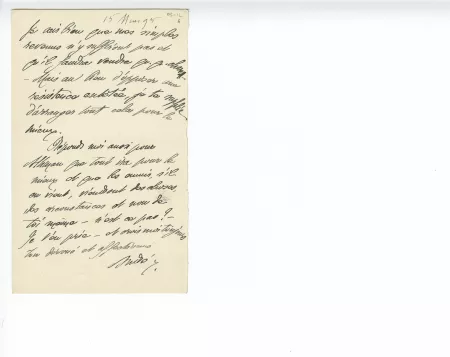 15 Mars 95
Je sais bien que nos simples
revenus n'y suffiront pas et
qu'il faudra vendre
- Mais au lieu d'opposer une
résistance entêtée je te supplie
d'arranger tout cela pour le
mieux.
Réponds moi aussi pour
que tout ira pour le
mieux et que les ennuis, s'il
en vient, viendront des choses
des circonstances et non de
toi même - n'est ce pas? -
Je t'en prie - et crois moi toujours
ton dévoué et affectueux
André